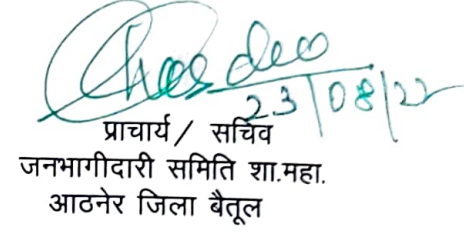 23/08/22
प्राचार्य / सचिव
जनभागीदारी समिति शा.महा.
आठनेर जिला बैतूल